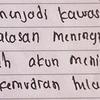 menjadi kawas
alasan menrag
ah akun meni
kemudran hile